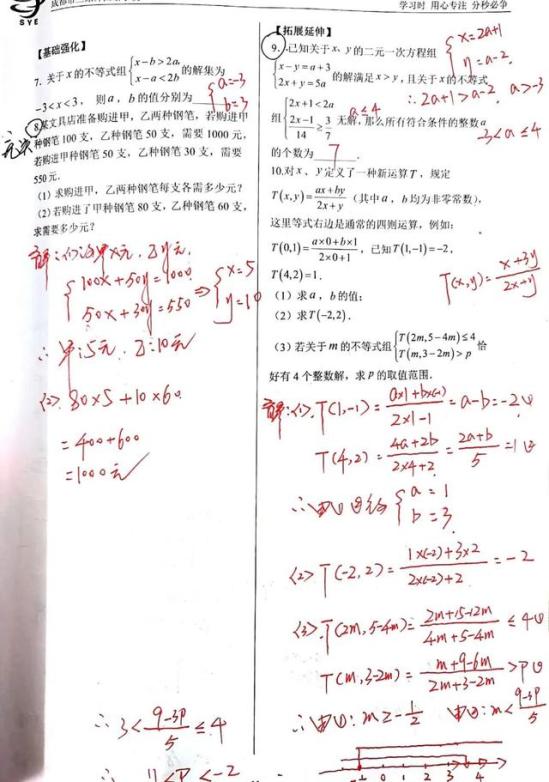 SYE
学习时 用心专注 分秒必争
【基础强化】
7. 关于x的不等式组{x-b>2a, x-a<2b 的解集为
-3<x<3, 则a, b的值分别为
{a=-3 b=3
8.某文具店准备购进甲, 乙两种钢笔, 若购进甲
种钢笔 100 支, 乙种钢笔 50 支, 需要 1000 元,
若购进甲种钢笔 50 支, 乙种钢笔 30 支, 需要
550元.
(1) 求购进甲, 乙两种钢笔每支各需多少元?
(2) 若购进了甲种钢笔 80 支, 乙种钢笔 60 支,
求需要多少元?
解:<1>设甲x元, 乙y元.
{100x+50y=1000 50x+30y=550 ⇒ {x=5 y=10
∴ 甲:5元, 乙:10元
<2>. 80×5+10×60
=400+600
=1000元
【拓展延伸】
9. 已知关于x、y的二元一次方程组
{x-y=a+3 2x+y=5a 的解满足x>y, 且关于x的不等式
{x=2a+1 y=a-2.
∴2a+1>a-2 a>-3
组{2x+1<2a (2x-1)/14≥3/7 无解, 那么所有符合条件的整数a
a≤4
-3<a≤4
的个数为 7 .
10.对x、y定义了一种新运算T, 规定
T(x,y)=(ax+by)/(2x+y) (其中a, b均为非零常数),
这里等式右边是通常的四则运算, 例如:
T(0,1)=(a×0+b×1)/(2×0+1), 已知T(1,-1)=-2,
T(4,2)=1.
T(x,y)=(x+3y)/(2x+y)
(1) 求a, b的值;
(2) 求T(-2,2).
(3) 若关于m的不等式组{T(2m,5-4m)≤4 T(m,3-2m)>p 恰
好有 4 个整数解, 求P的取值范围.
解:<1>. T(1,-1)=(a×1+b×(-1))/(2×1-1)=a-b=-2①
T(4,2)=(4a+2b)/(2×4+2)=(2a+b)/5=1②
∴由①②得{a=1 b=3.
<2> T(-2,2)=(1×(-2)+3×2)/(2×(-2)+2)=-2
<3>. T(2m,5-4m)=(2m+15-12m)/(4m+5-4m)≤4①
T(m,3-2m)=(m+9-6m)/(2m+3-2m)>P②
∴由①: m≥-1/2 由②: m<(9-3P)/5
∴3<(9-3P)/5≤4
-1 0 1 2 3 4